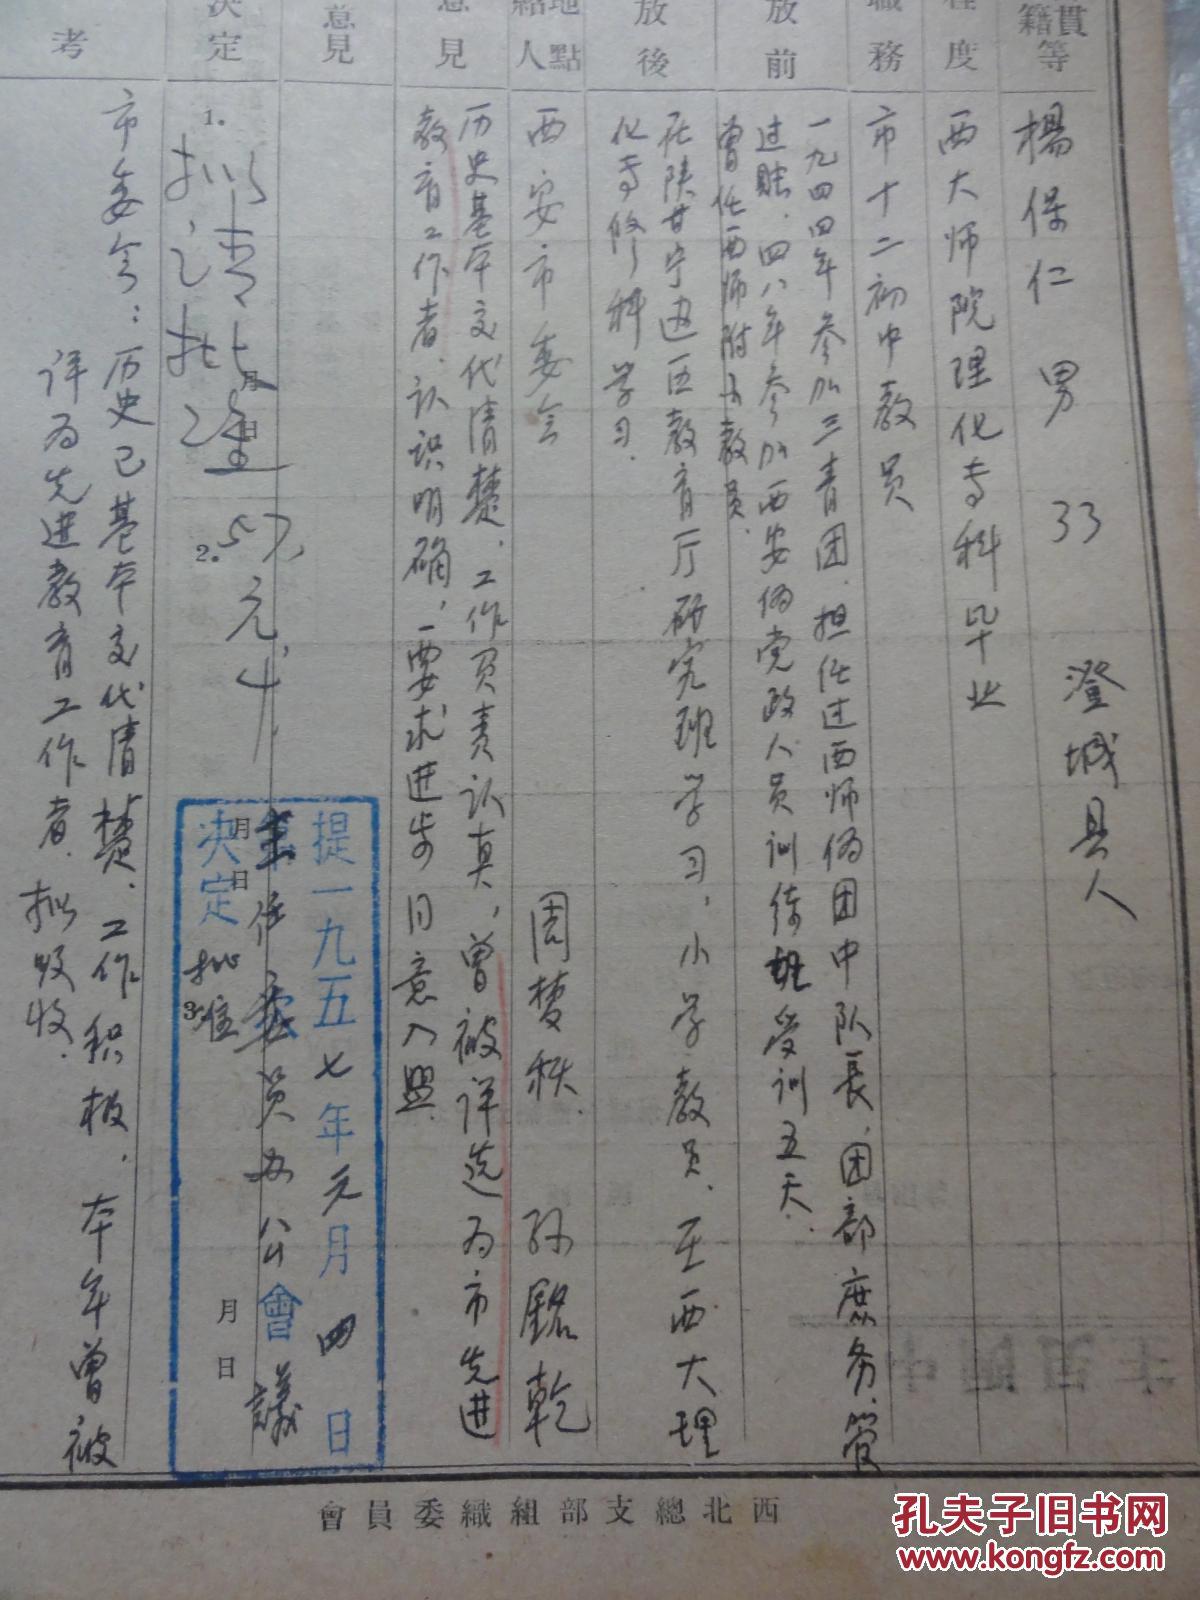 貫
籍
等
楊保仁 男 33 澄城县人
度
西大师院理化专科毕业
職
務
市十二初中教員
放
前
一九四四年参加三青团、担任过西师伪团中队長、团部庶务、管
过賬、四八年参加西安伪党政人员训练班受训五天、
曾任西师附小教員、
放
後
在陕甘宁边区教育厅研究班学习、小学教员、至西大理
化专修科学习、
地點
人
西安市委会 周 孙銘乾
意
見
历史基本交代清楚、工作负责认真、曾被评选为市先进
教育工作者、认识明确、要求进步同意入盟
意
見
决
定
1.
拟请批准
月
日
2.
57,元,4,
提一九五七年元月四日
主任委员办公會議
决定
批准
月
日
3.
月
日
考
市委会：历史已基本交代清楚、工作积极、本年曾被
评为先进教育工作者、拟吸收、
會員委織組部支總北西
孔夫子旧书网
www.kongfz.com